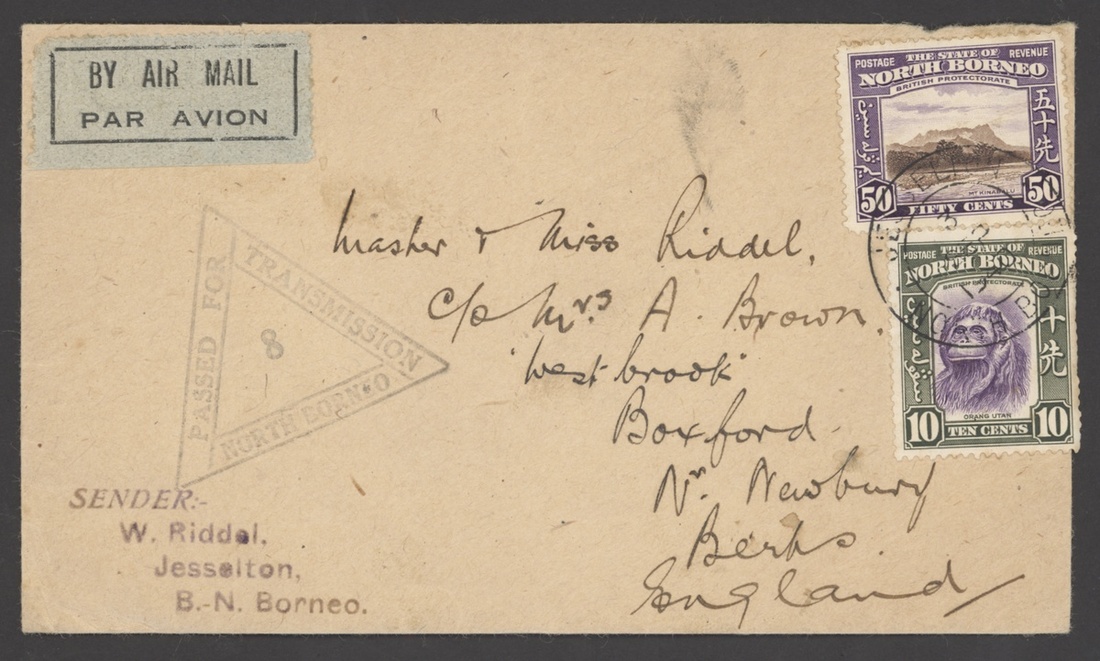 BY AIR MAIL
PAR AVION
POSTAGE THE STATE OF REVENUE
NORTH BORNEO
BRITISH PROTECTORATE
五十先
MT KINABALU
50 FIFTY CENTS 50
POSTAGE THE STATE OF REVENUE
NORTH BORNEO
BRITISH PROTECTORATE
十先
ORANG UTAN
10 TEN CENTS 10
Master & Miss Riddel,
c/o Mrs A. Brown,
"Westbrook"
Boxford
Nr. Newbury
Berks.
England
PASSED FOR
TRANSMISSION
NORTH BORNEO
8
SENDER:-
W. Riddel,
Jesselton,
B.-N. Borneo.